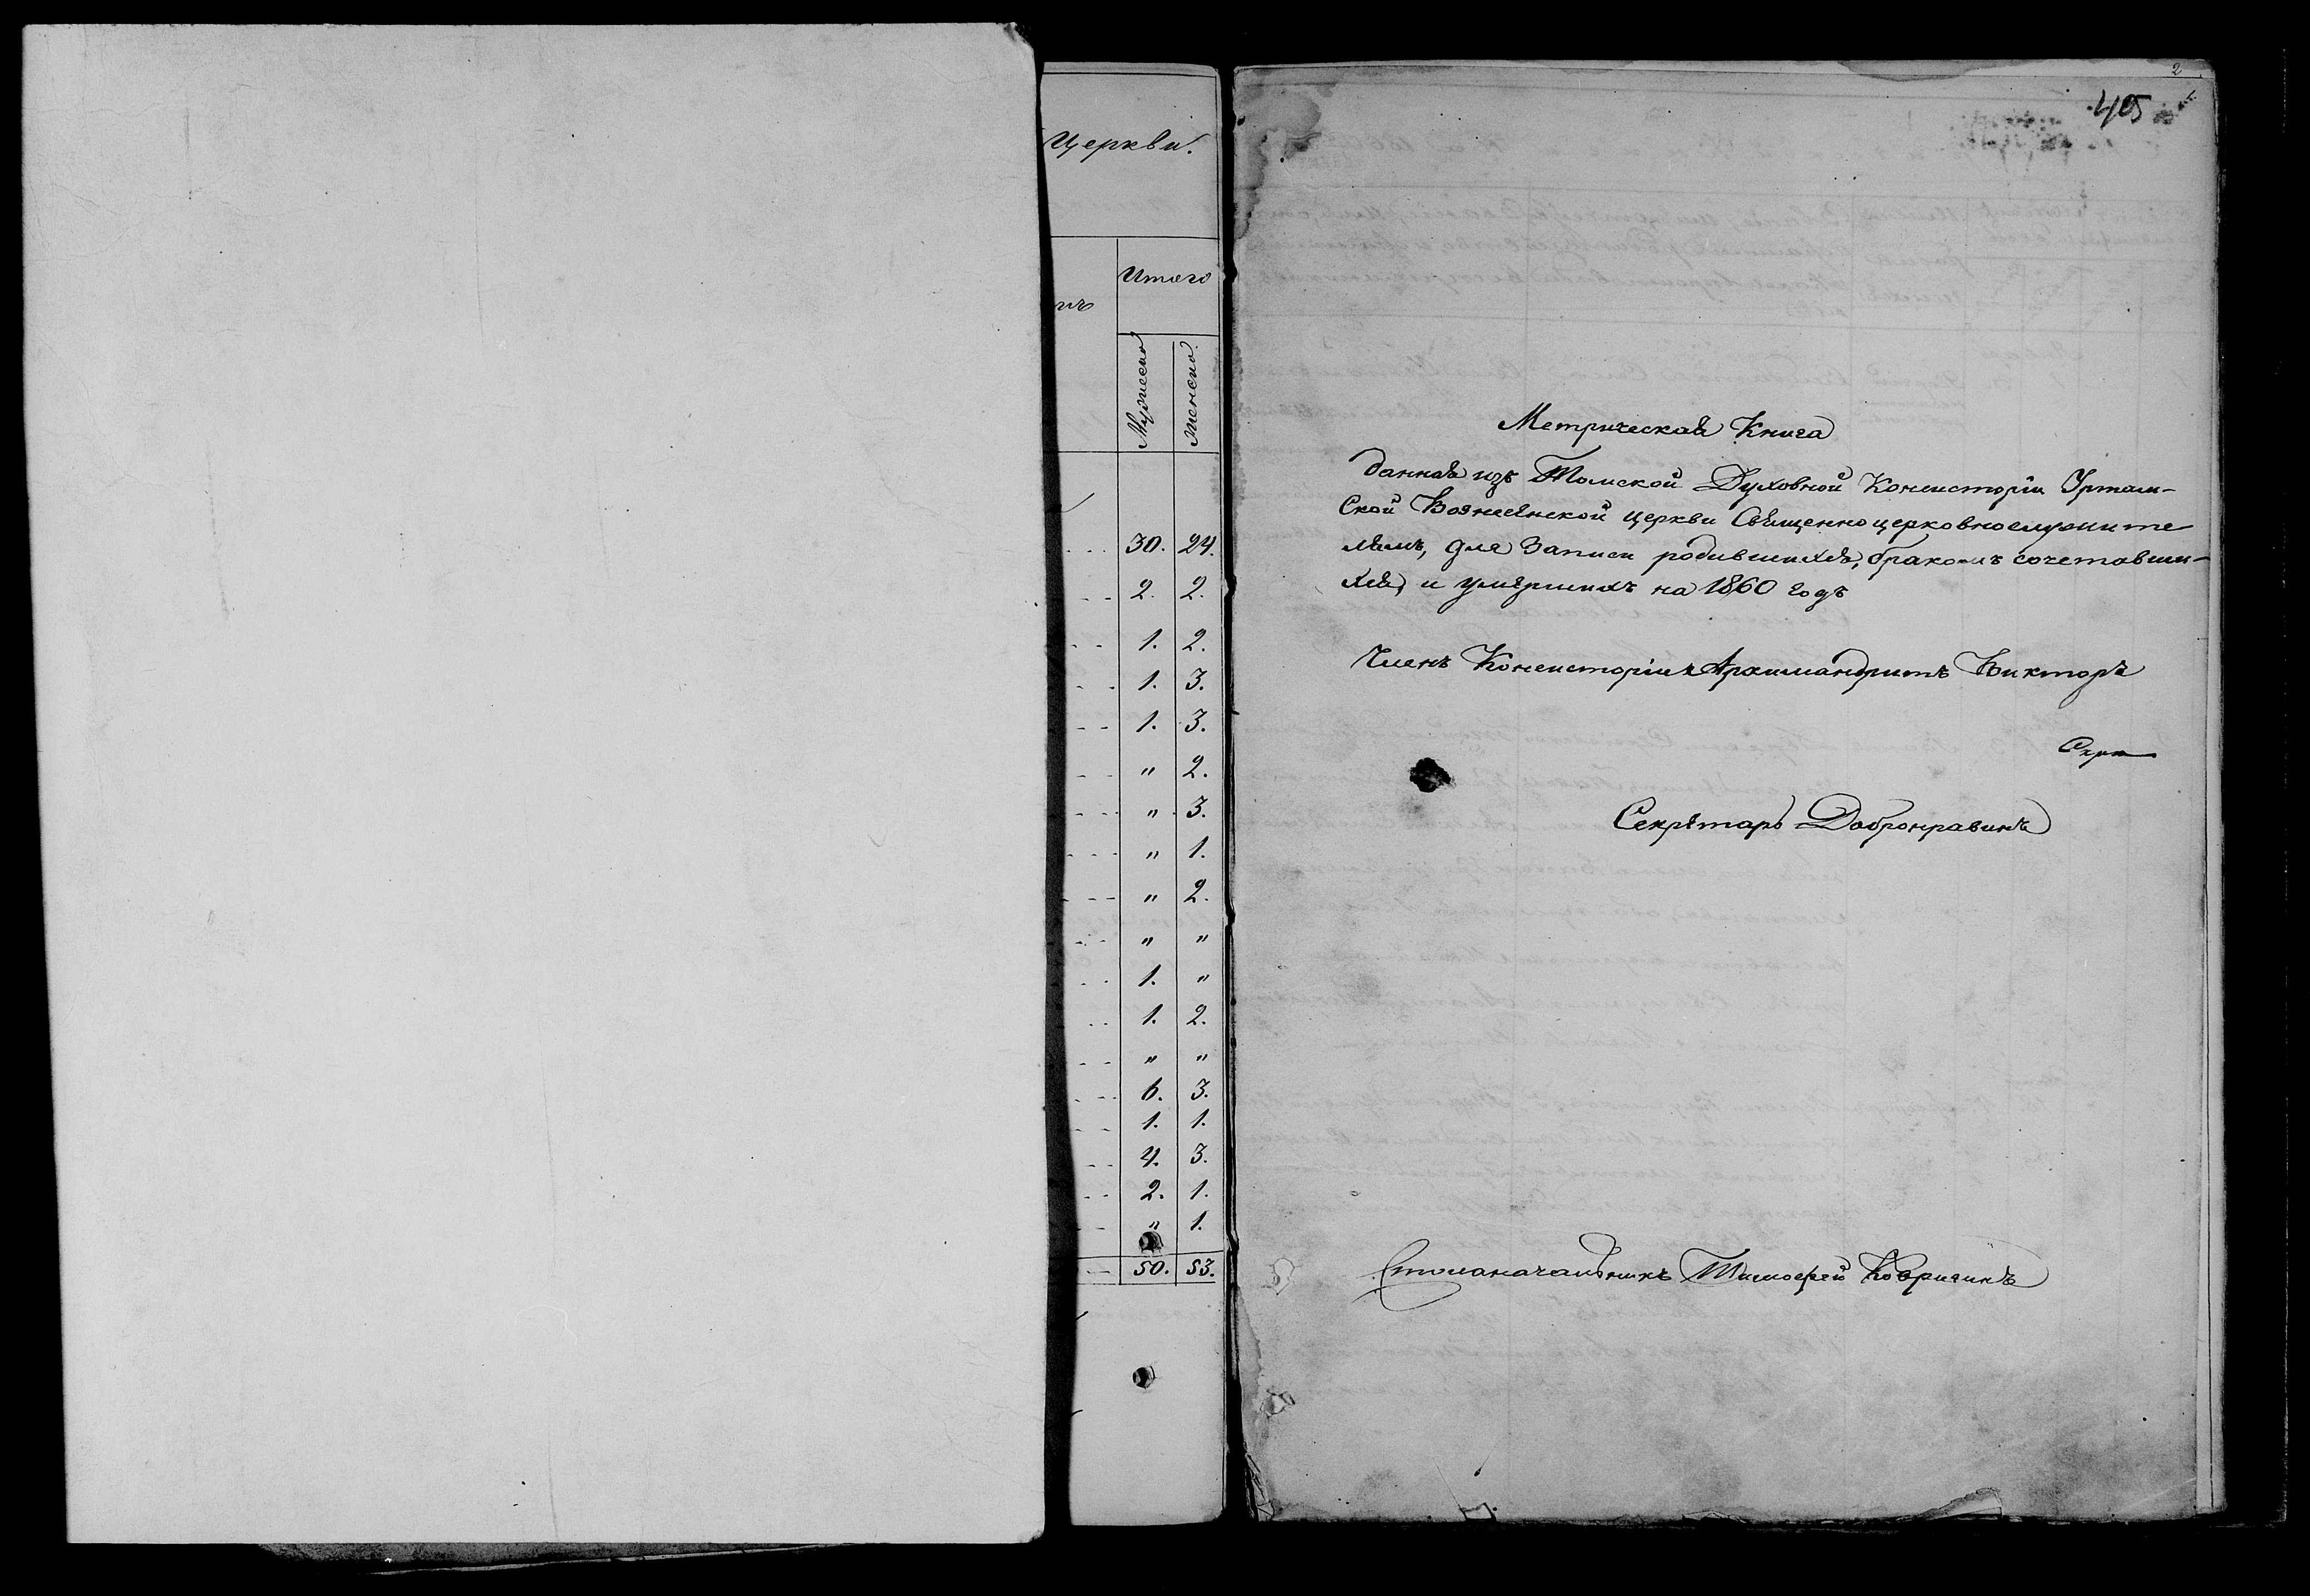 Церкви.
Итого
Мужеска
Женска.
30. 24.
2. 2.
1. 2.
1. 3.
1. 3.
" 2.
" 3.
" 1.
" 2.
" "
1. "
1. 2.
" "
6. 3.
1. 1.
4. 3.
2. 1.
" 1.
50. 53.
2
405
Метрическая Книга
данная изъ Томской Духовной Консисторіи Уртам-
ской Вознесенской церкви Священноцерковнослужите
лямъ, для записи родившихся, бракомъ сочетавши-
хся и умершихъ на 1860 годъ
Членъ Консисторіи Архимандритъ Викторъ
Секретарь Добронравинъ
Столоначальникъ Тимофей Ковригинъ